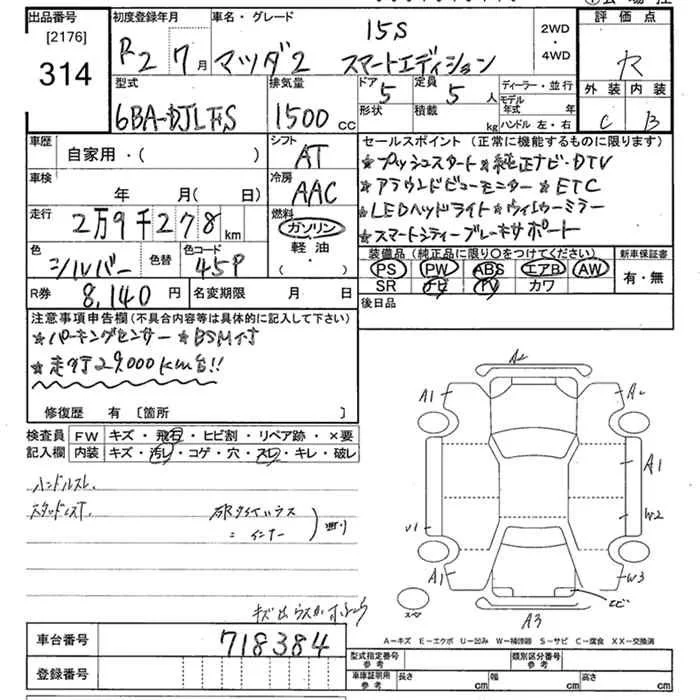 出品番号
[2176]
314
初度登録年月
R2 7月
車名・グレード
15S
マツダ2 スマートエディション
2WD
・
4WD
評価点
R
外装 内装
C B
型式
6BA-DJLFS
排気量
1500 cc
ドア
5
定員
5 人
形状
積載
kg
ディーラー・並行
モデル年式 年
ハンドル 左・右
車歴
自家用・( )
シフト
AT
車検
年 月( 日)
冷房
AAC
走行
2万9千278 km
燃料
ガソリン
軽・油
( ・ )
色
シルバー
色替
色コード
45P
R券
8,140 円
名変期限 月 日
セールスポイント (正常に機能するものに限ります)
★プッシュスタート★純正ナビ・DTV
★アラウンドビューモニター ★ETC
★LEDヘッドライト★ウィンカーミラー
★スマートシティーブレーキサポート
装備品 (純正品に限り〇をつけてください)
PS PW ABS エアB AW
SR ナビ TV カワ
新車保証書
有・無
後日品
注意事項申告欄 (不具合内容等は具体的に記入して下さい)
★パーキングセンサー ★BSM付
★走行29,000km台!!
修復歴 有 [箇所 ]
検査員
記入欄
FW キズ・飛石・ヒビ割・リペア跡・×要
内装 キズ・汚レ・コゲ・穴・スレ・キレ・破レ
ハンドルスレ
A2
A1 A2
A1
W2
A1 W3
A3
A－キズ E－エクボ U－凹み W－補修跡 S－サビ C－腐食 XX－交換済
車台番号
718384
登録番号
型式指定番号
参考
類別区分番号
参考
車庫証明用
参考
長さ cm
幅 cm
高さ cm